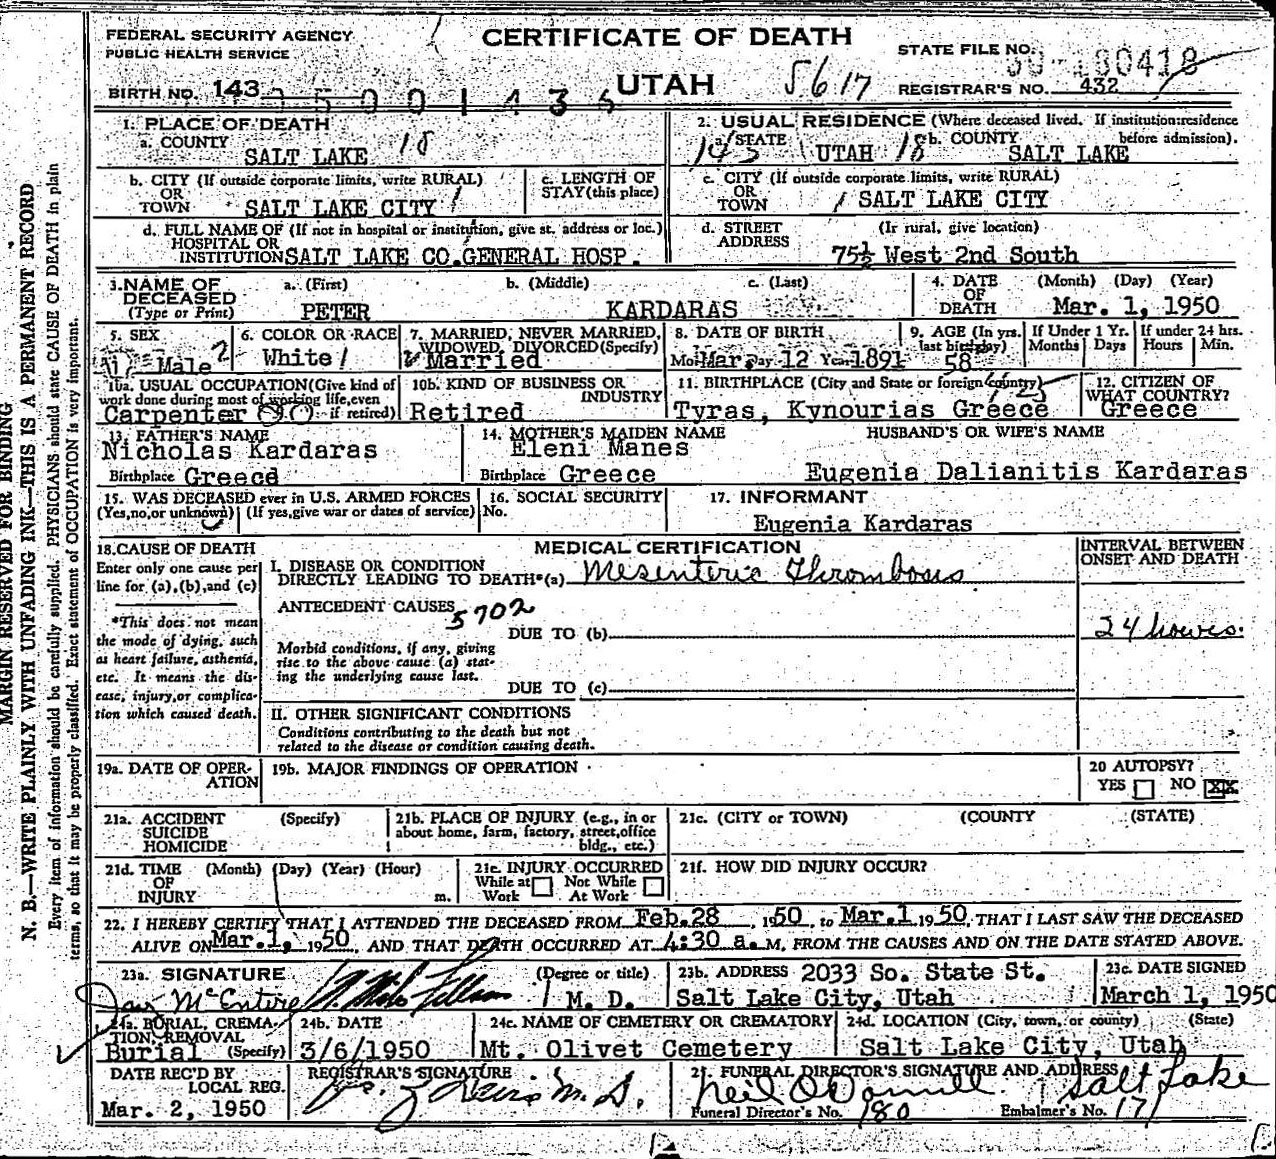 FEDERAL SECURITY AGENCY
PUBLIC HEALTH SERVICE
CERTIFICATE OF DEATH
UTAH
5617
STATE FILE NO.
BIRTH NO. 143
REGISTRAR'S NO. 432
1. PLACE OF DEATH
a. COUNTY
SALT LAKE 18
2. USUAL RESIDENCE (Where deceased lived. If institution:residence before admission).
a. STATE UTAH 18 b. COUNTY SALT LAKE
143
b. CITY (If outside corporate limits, write RURAL)
OR
TOWN SALT LAKE CITY
c. LENGTH OF
STAY (this place)
c. CITY (If outside corporate limits, write RURAL)
OR
TOWN SALT LAKE CITY
d. FULL NAME OF (If not in hospital or institution, give st. address or loc.)
HOSPITAL OR
INSTITUTION SALT LAKE CO. GENERAL HOSP.
d. STREET (If rural, give location)
ADDRESS
75½ West 2nd South
3. NAME OF DECEASED (Type or Print)
a. (First) b. (Middle) c. (Last)
PETER KARDARAS
4. DATE OF DEATH (Month) (Day) (Year)
Mar. 1, 1950
5. SEX
Male 2
6. COLOR OR RACE
White 1
7. MARRIED, NEVER MARRIED, WIDOWED, DIVORCED (Specify)
Married
8. DATE OF BIRTH
Mo. Mar. Day 12 Year 1891
9. AGE (In yrs. last birthday)
58
If Under 1 Yr.
Months Days
If under 24 hrs.
Hours Min.
10a. USUAL OCCUPATION (Give kind of work done during most of working life, even if retired)
Carpenter
10b. KIND OF BUSINESS OR INDUSTRY
Retired
11. BIRTHPLACE (City and State or foreign country)
Tyras, Kynourias Greece
12. CITIZEN OF WHAT COUNTRY?
Greece
13. FATHER'S NAME
Nicholas Kardaras
Birthplace Greece
14. MOTHER'S MAIDEN NAME
Eleni Manes
Birthplace Greece
HUSBAND'S OR WIFE'S NAME
Eugenia Dalianitis Kardaras
15. WAS DECEASED ever in U.S. ARMED FORCES
(Yes, no, or unknown) (If yes, give war or dates of service)
16. SOCIAL SECURITY
No.
17. INFORMANT
Eugenia Kardaras
18. CAUSE OF DEATH
Enter only one cause per
line for (a), (b), and (c)
*This does not mean
the mode of dying, such
as heart failure, asthenia,
etc. It means the dis-
ease, injury, or complica-
tion which caused death.
MEDICAL CERTIFICATION
I. DISEASE OR CONDITION
DIRECTLY LEADING TO DEATH*(a) Mesenteric Thrombosis
ANTECEDENT CAUSES
5702
DUE TO (b)
Morbid conditions, if any, giving
rise to the above cause (a) stat-
ing the underlying cause last.
DUE TO (c)
II. OTHER SIGNIFICANT CONDITIONS
Conditions contributing to the death but not
related to the disease or condition causing death.
INTERVAL BETWEEN
ONSET AND DEATH
24 hours.
19a. DATE OF OPER-
ATION
19b. MAJOR FINDINGS OF OPERATION
20 AUTOPSY?
YES NO XX
21a. ACCIDENT (Specify)
SUICIDE
HOMICIDE
21b. PLACE OF INJURY (e.g., in or
about home, farm, factory, street, office
bldg., etc.)
21c. (CITY or TOWN) (COUNTY (STATE)
21d. TIME (Month) (Day) (Year) (Hour)
OF
INJURY m.
21e. INJURY OCCURRED
While at Not While
Work At Work
21f. HOW DID INJURY OCCUR?
22. I HEREBY CERTIFY THAT I ATTENDED THE DECEASED FROM Feb. 28, 1950, to Mar. 1 1950, THAT I LAST SAW THE DECEASED
ALIVE ON Mar. 1, 1950 AND THAT DEATH OCCURRED AT 4:30 a. M, FROM THE CAUSES AND ON THE DATE STATED ABOVE.
23a. SIGNATURE (Degree or title)
Jay McEntire M. D.
23b. ADDRESS 2033 So. State St.
Salt Lake City, Utah
23c. DATE SIGNED
March 1, 1950
24a. BURIAL, CREMA-
TION, REMOVAL
Burial (Specify)
24b. DATE
3/6/1950
24c. NAME OF CEMETERY OR CREMATORY
Mt. Olivet Cemetery
24d. LOCATION (City, town, or county) (State)
Salt Lake City, Utah
DATE REC'D BY
LOCAL REG.
Mar. 2, 1950
REGISTRAR'S SIGNATURE
M.D.
25. FUNERAL DIRECTOR'S SIGNATURE AND ADDRESS
Neil O'Donnell Salt Lake
Funeral Director's No. 180 Embalmer's No. 171
MARGIN RESERVED FOR BINDING
N. B.—WRITE PLAINLY WITH UNFADING INK—THIS IS A PERMANENT RECORD
Every item of information should be carefully supplied. PHYSICIANS should state CAUSE OF DEATH in plain
terms, so that it may be properly classified. Exact statement of OCCUPATION is very important.